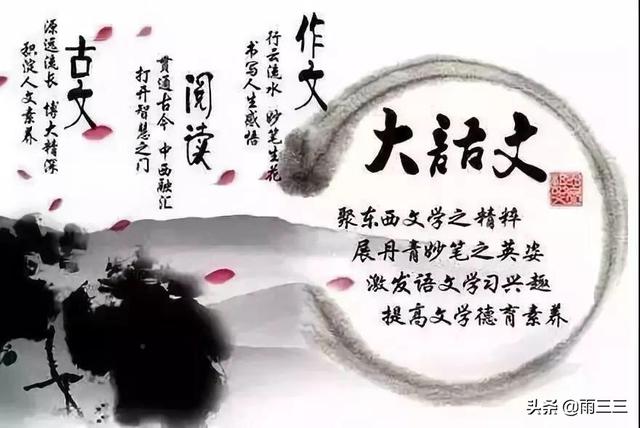 大語文
聚东西文学之精粹
展丹青妙笔之英姿
激发语文学习兴趣
提高文学德育素养
作文
行云流水 妙笔生花
书写人生感悟
阅读
贯通古今 中西融汇
打开智慧之门
古文
源远流长 博大精深
积淀人文素养
头条 @雨三三